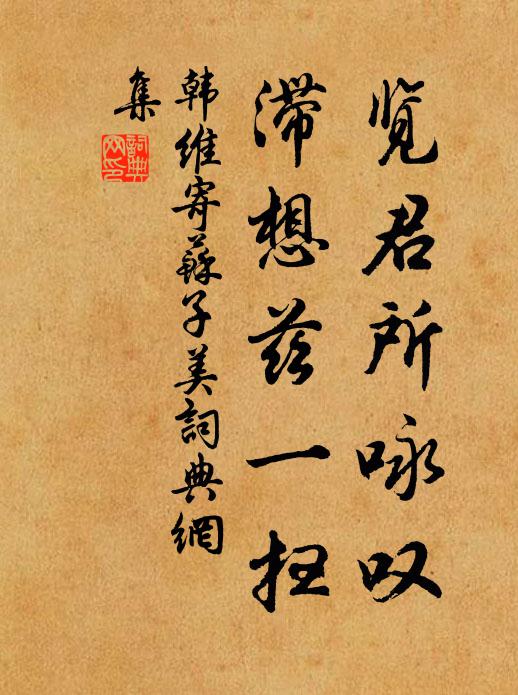 览君所咏叹
滞想兹一扫
韩维寄苏子美詞典網
集
詞典网印